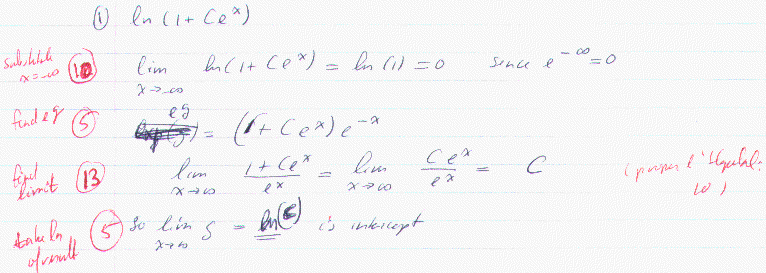 ① ln (1 + Ce^x)
substitute x = -∞ 10 lim x→-∞ ln(1 + Ce^x) = ln(1) = 0 since e^-∞ = 0
find e^g 5 e^g = (1 + Ce^x) e^-x
find limit 13 lim x→∞ 1 + Ce^x / e^x = lim x→∞ Ce^x / e^x = C (proper l'Hopital: 10)
take ln of result 5 So lim x→∞ g = ln(C) is intercept